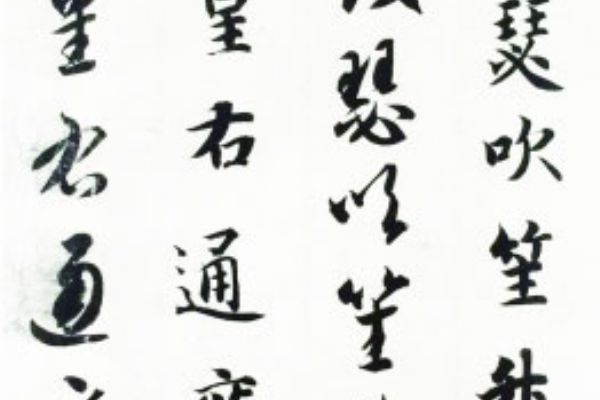 瑟吹笙
瑟吹笙
星右通
星右通